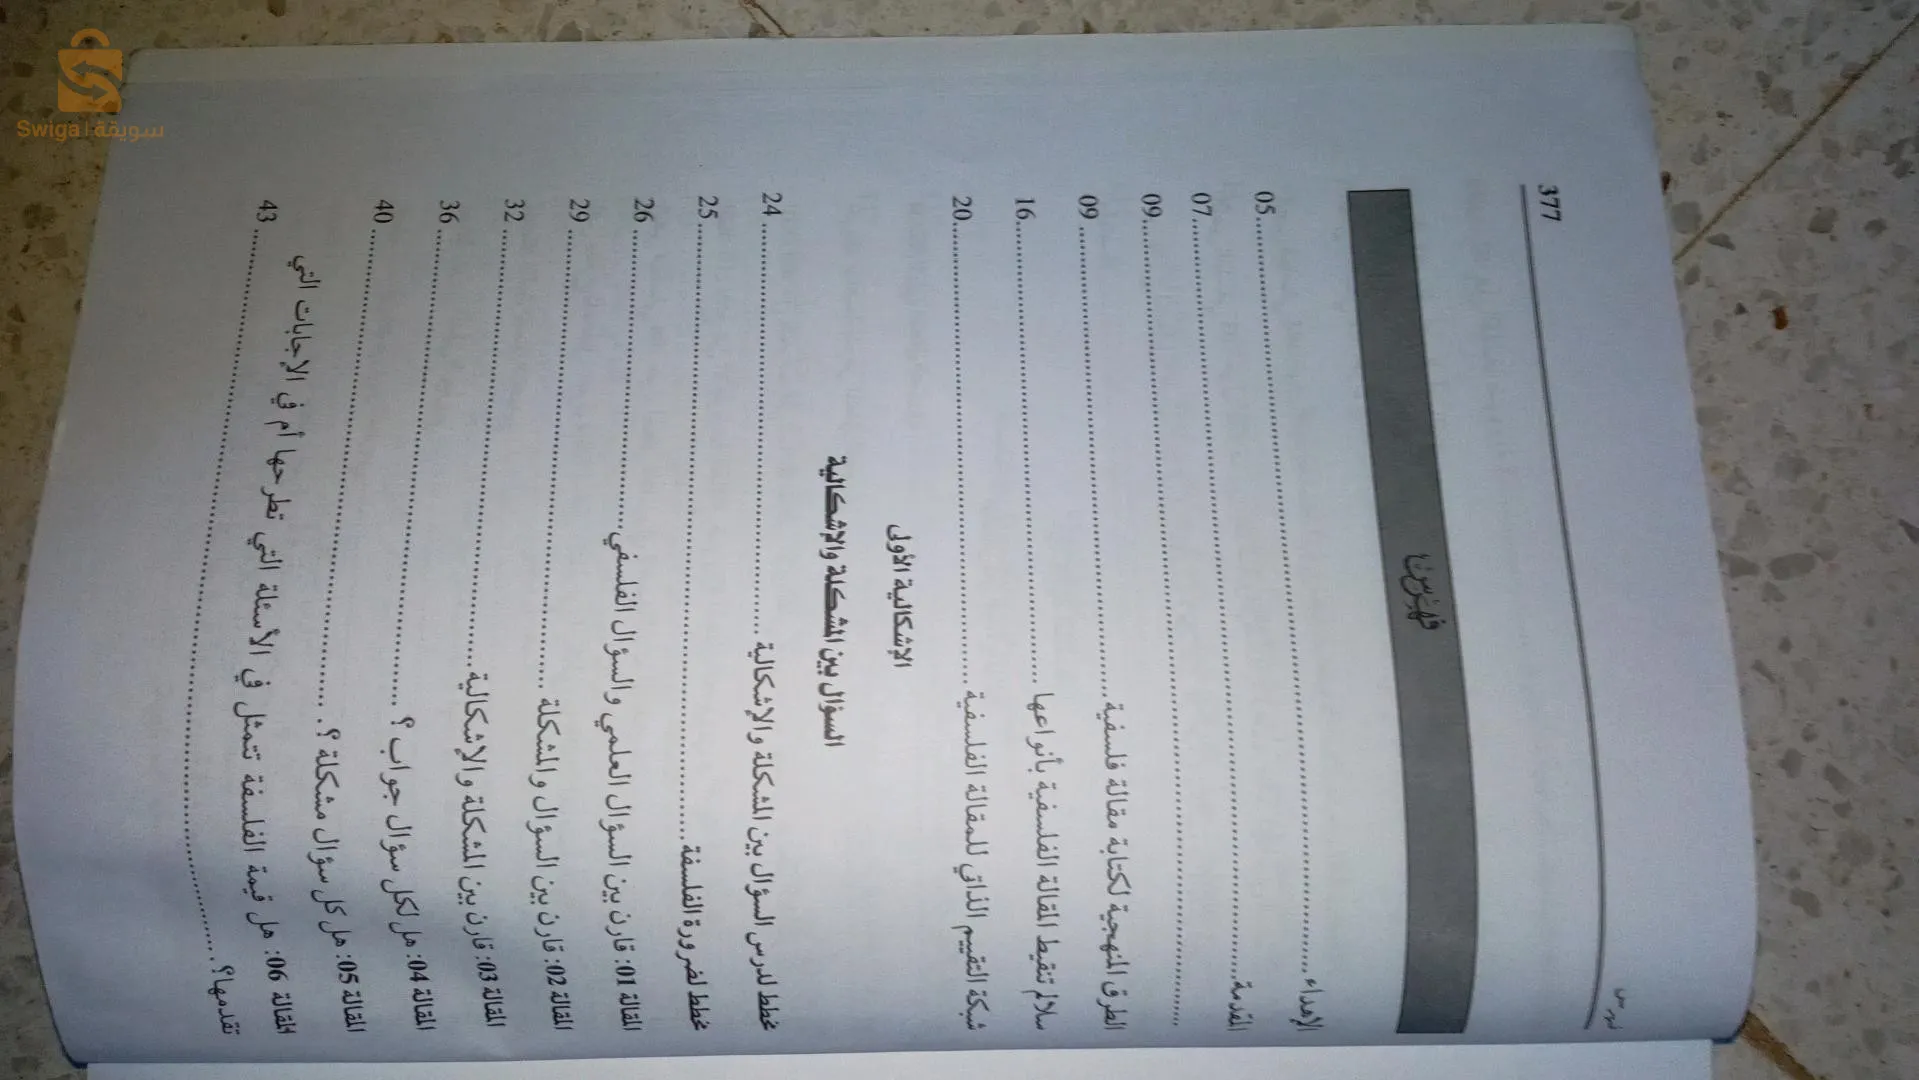 سويقة | Swiga
377
فهرس
الإهداء.....05
المقدمة.....07
.....09
الطرق المنهجية لكتابة مقالة فلسفية.....09
سلالم تنقيط المقالة الفلسفية بأنواعها.....16
شبكة التقييم الذاتي للمقالة الفلسفية.....20
الإشكالية الأولى
السؤال بين المشكلة والإشكالية
مخطط لدرس السؤال بين المشكلة والإشكالية.....24
مخطط لضرورة الفلسفة.....25
المقالة 01: قارن بين السؤال العلمي والسؤال الفلسفي.....26
المقالة 02: قارن بين السؤال والمشكلة.....29
المقالة 03: قارن بين المشكلة والإشكالية.....32
المقالة 04: هل لكل سؤال جواب؟.....36
المقالة 05: هل كل سؤال مشكلة؟.....40
المقالة 06: هل قيمة الفلسفة تتمثل في الأسئلة التي تطرحها أم في الإجابات التي
تقدمها؟.....43